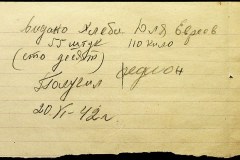 видано хлеба Для Евреев
55 штук 110 кило
(сто десят)
Получил
20 VI - 42 г.